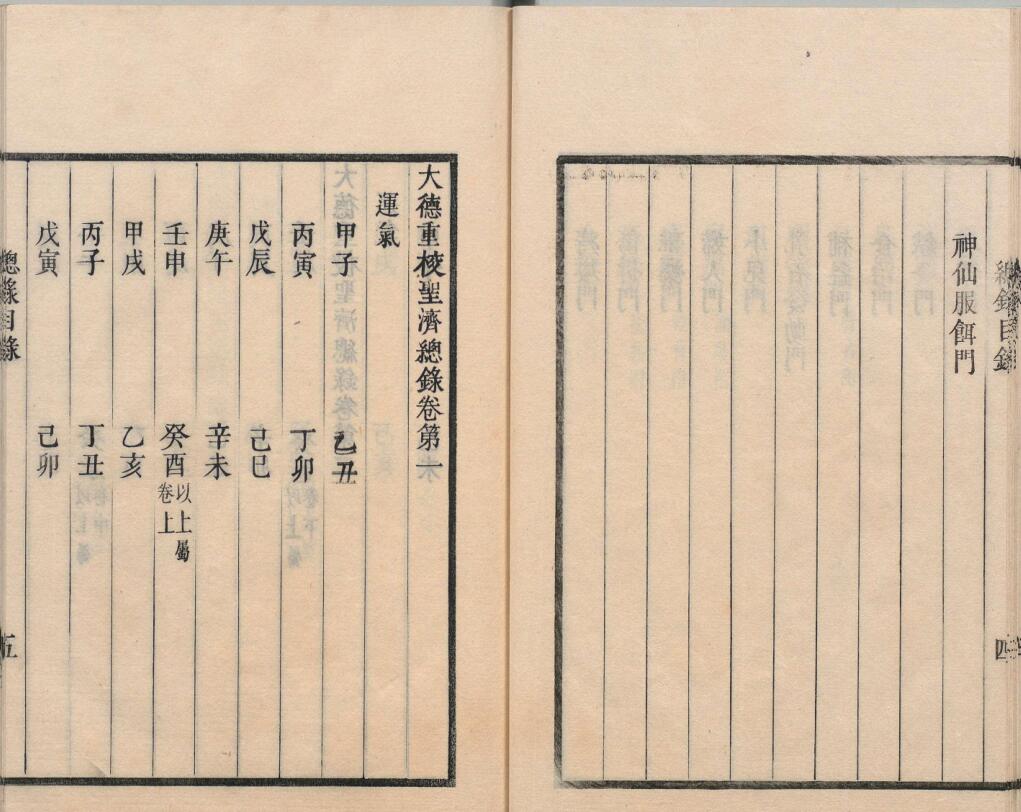 總錄目錄
四
神仙服餌門
大德重校聖濟總錄卷第一
運氣
甲子 乙丑
丙寅 丁卯
戊辰 己巳
庚午 辛未
壬申 癸酉 以上屬卷上
甲戌 乙亥
丙子 丁丑
戊寅 己卯
總錄目錄
五